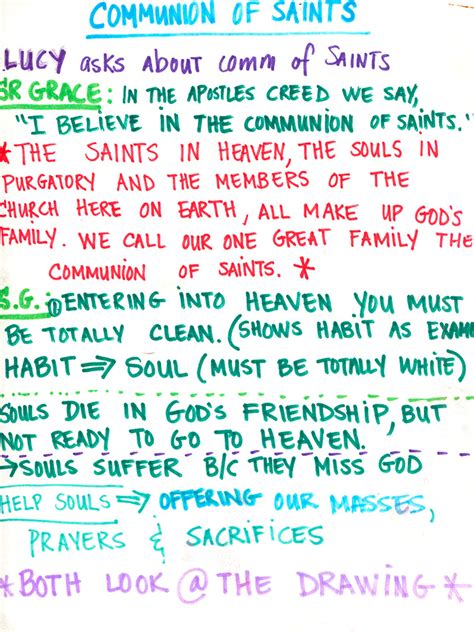 COMMUNION OF SAINTS
LUCY asks ABOUT comm of SAINTS
SR GRACE: IN THE APOSTLES CREED WE SAY,
"I BELIEVE IN THE COMMUNION OF SAINTS."
*THE SAINTS IN HEAVEN, THE SOULS IN
PURGATORY AND THE MEMBERS OF THE
CHURCH HERE ON EARTH, ALL MAKE UP GOD'S
FAMILY. WE CALL OUR ONE GREAT FAMILY THE
COMMUNION OF SAINTS. *
S.G.: ① ENTERING INTO HEAVEN YOU MUST
BE TOTALLY CLEAN. (SHOWS HABIT AS EXAM
HABIT ⇒ SOUL (MUST BE TOTALLY WHITE)
SOULS DIE IN GOD'S FRIENDSHIP, BUT
NOT READY TO GO TO HEAVEN.
→SOULS SUFFER B/C THEY MISS GOD
HELP SOULS ⇒ OFFERING OUR MASSES,
PRAYERS & SACRIFICES
*BOTH LOOK @ THE DRAWING *